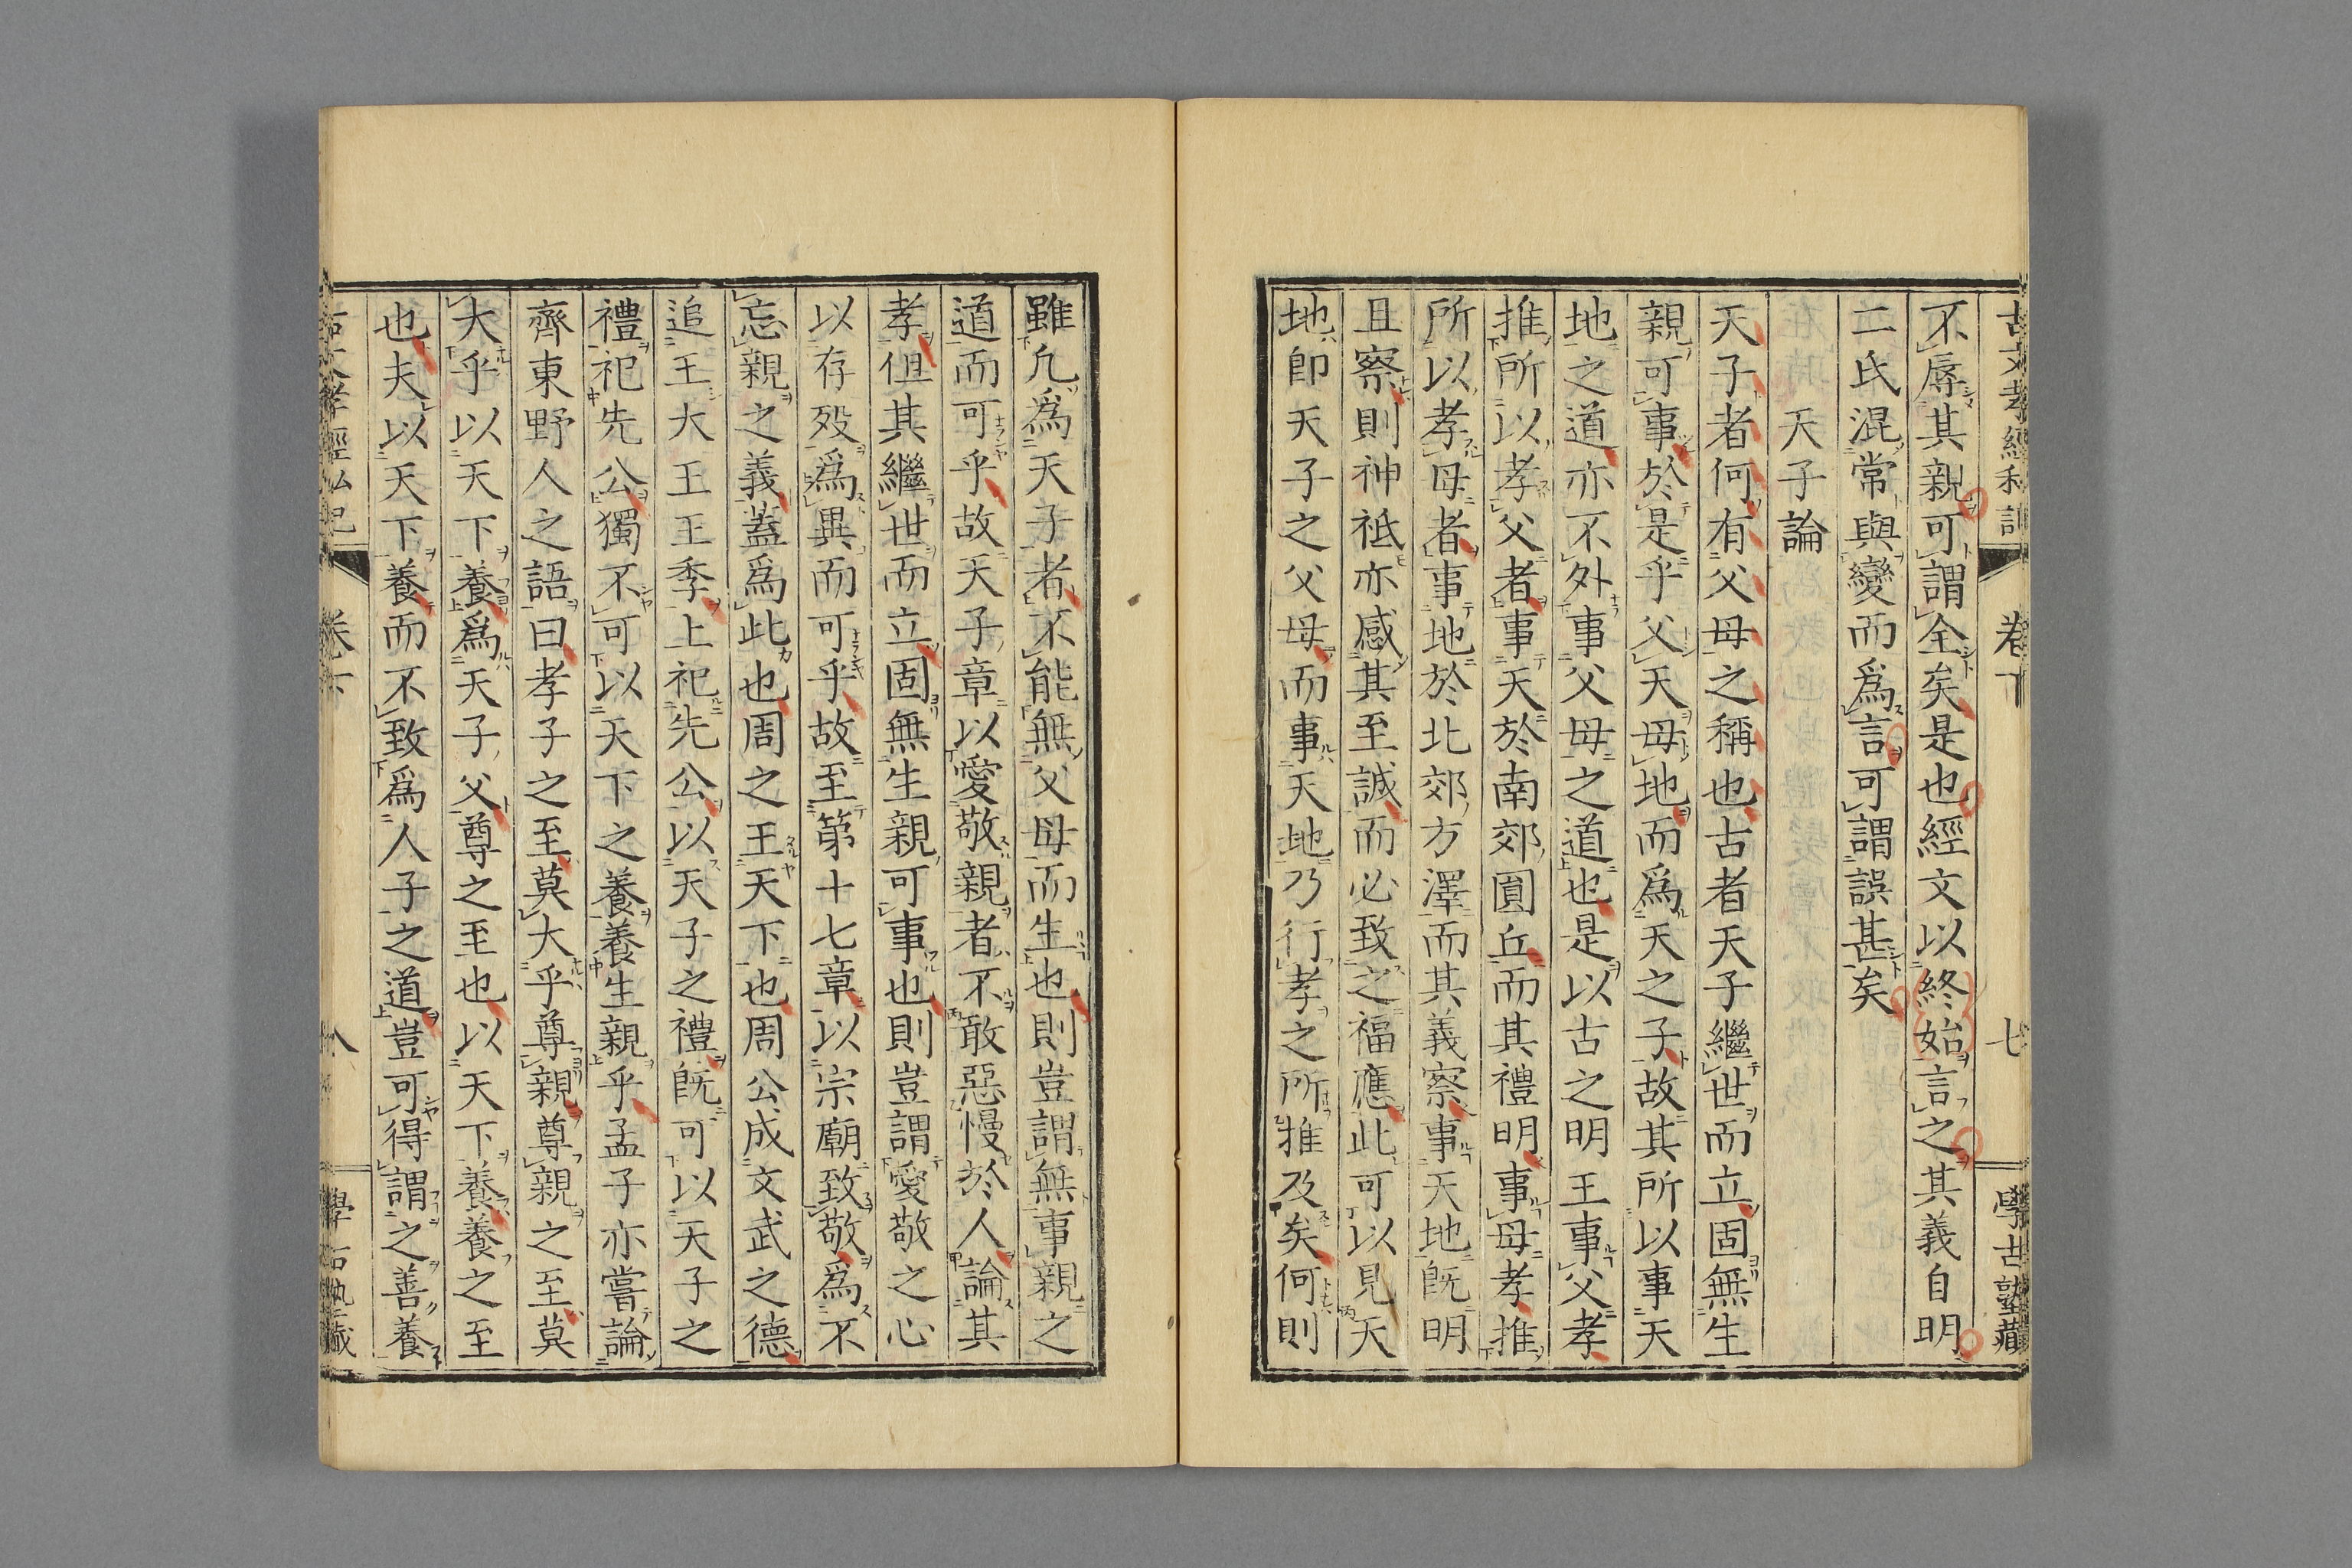 古文孝經私記 卷下 七 學古塾藏
不辱其親可謂全矣是也經文以終始言之其義自明
二氏混常與變而爲言可謂誤甚矣
天子論
天子者何有父母之稱也古者天子繼世而立固無生
親可事於是乎父天母地而爲天之子故其所以事天
地之道亦不外事父母之道也是以古之明王事父孝
推所以孝父者事天於南郊圓丘而其禮明事母孝推
所以孝母者事地於北郊方澤而其義察事天地既明
且察則神祇亦感其至誠而必致之福應此可以見天
地即天子之父母而事天地乃行孝之所推及矣何則
雖凢爲天子者不能無父母而生也則豈謂無事親之
道而可乎故天子章以愛敬親者不敢惡慢於人論其
孝但其繼世而立固無生親可事也則豈謂愛敬之心
以存歿爲異而可乎故至第十七章以宗廟致敬爲不
忘親之義蓋爲此也周之王天下也周公成文武之德
追王大王王季上祀先公以天子之禮既可以天子之
禮祀先公獨不可以天下之養養生親乎孟子亦嘗論
齊東野人之語曰孝子之至莫大乎尊親尊親之至莫
大乎以天下養爲天子父尊之至也以天下養養之至
也夫以天下養而不致爲人子之道豈可得謂之善養
古文孝經私記 卷下 八 學古塾藏